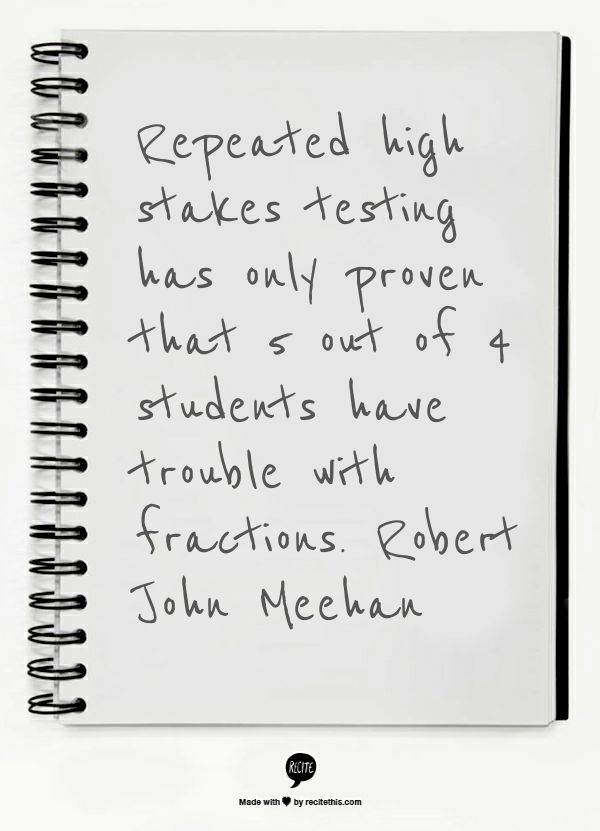 Repeated high
stakes testing
has only proven
that 5 out of 4
students have
trouble with
fractions. Robert
John Meehan
RECITE
Made with ♥ by recitethis.com